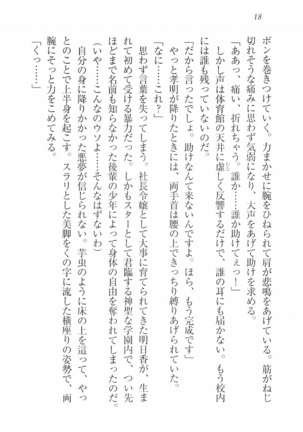 18
ボンを巻きつけていく。力まかせに腕をひねられて肩が悲鳴をあげている。筋がねじ
切れそうな痛みに思わず気弱になり、大声をあげて助けを求める。
「ああっ、痛い、折れちゃう。誰か……誰か助けてぇっー！」
しかし声は体育館の天井に虚しく反響するだけで、誰の耳にも届かない。もう校内
には誰も残っていないのだ。
「だから言ったでしょ。助けなんて来ないんですよ。ほら、もう完成です」
やっと孝明が降りたときには、両手首は腰の上できっちり縛りあげられていた。
「なに……これ？」
思わず言葉を失ってしまう。社長令嬢として大事に育てられてきた明日香が、生ま
れて初めて受ける暴力だった。しかもスターとして君臨する神聖な学園内で、ついさき
ほどまで名前も知らなかった後輩の少年によって身体の自由を奪われてしまったのだ。
（いや……こんなのウソよ……そんなはずないわ）
自分の身に降りかかった悪夢が信じられない。芋虫のように床の上を這って、やっ
とのことで上半身を起こす。スラリとした美脚をくの字に流した横座りの姿勢で、両
腕にそっと力をこめてみる。
「くっ……」